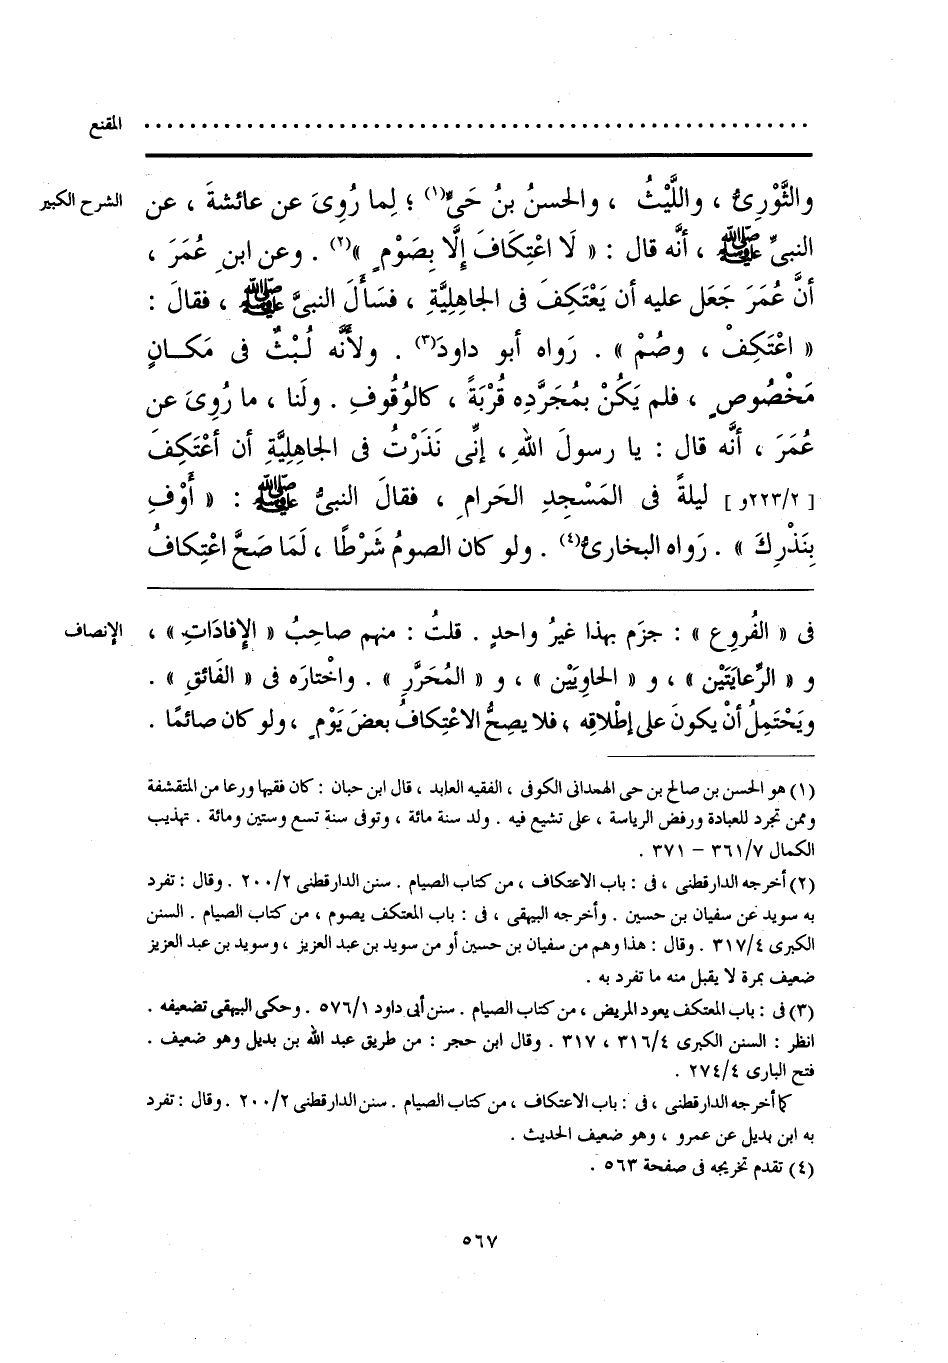 المقنع ............................................................
الشرح الكبير
والثَّوْرِىُّ ، واللَّيْثُ ، والحسنُ بنُ حَىٍّ(١) ؛ لِما رُوِىَ عن عائشةَ ، عن
النبىِّ ﷺ ، أنَّه قال : « لَا اعْتِكَافَ إلَّا بِصَوْمٍ »(٢) . وعن ابنِ عُمَرَ ،
أنَّ عُمَرَ جَعَل عليه أن يَعْتَكِفَ فى الجاهِلِيَّةِ ، فسَأَلَ النبىَّ ﷺ ، فقالَ :
« اعْتَكِفْ ، وصُمْ » . رَواه أبو داودَ(٣) . ولأنَّه لُبْثٌ فى مَكانٍ
مَخْصُوصٍ ، فلم يَكُنْ بمُجَرَّدِه قُرْبَةً ، كالوُقُوفِ . ولَنا ، ما رُوِىَ عن
عُمَرَ ، أنَّه قال : يا رسولَ اللهِ ، إنِّى نَذَرْتُ فى الجاهِلِيَّةِ أن أعْتَكِفَ
[ ٢٢٣/٢و ] ليلةً فى المَسْجِدِ الحَرامِ ، فقالَ النبىُّ ﷺ : « أَوْفِ
بِنَذْرِكَ » . رَواه البخارىُّ(٤) . ولو كان الصومُ شَرْطًا ، لَمَا صَحَّ اعْتِكافُ
الإنصاف
فى « الفُروعِ » : جزَم بهذا غيرُ واحدٍ . قلتُ : منهم صاحِبُ « الإِفادَاتِ » ،
و « الرِّعايَتَيْن » ، و « الحاوِيَيْن » ، و « المُحَرَّرِ » . واخْتارَه فى « الفَائقِ » .
ويَحْتَمِلُ أنْ يكونَ على إطْلاقِه ، فلا يصِحُّ الاعْتِكافُ بعضَ يَوْمٍ ، ولو كان صائمًا .
(١) هو الحسن بن صالح بن حى الهمدانى الكوفى ، الفقيه العابد ، قال ابن حبان : كان فقيها ورعا من المتقشفة
وممن تجرد للعبادة ورفض الرياسة ، على تشيع فيه . ولد سنة مائة ، وتوفى سنة تسع وستين ومائة . تهذيب
الكمال ٣٦١/٧ – ٣٧١ .
(٢) أخرجه الدارقطنى ، فى : باب الاعتكاف ، من كتاب الصيام . سنن الدارقطنى ٢٠٠/٢ . وقال : تفرد
به سويد عن سفيان بن حسين . وأخرجه البيهقى ، فى : باب المعتكف يصوم ، من كتاب الصيام . السنن
الكبرى ٣١٧/٤ . وقال : هذا وهم من سفيان بن حسين أو من سويد بن عبد العزيز ، وسويد بن عبد العزيز
ضعيف بمرة لا يقبل منه ما تفرد به .
(٣) فى : باب المعتكف يعود المريض ، من كتاب الصيام . سنن أبى داود ٥٧٦/١ . وحكى البيهقى تضعيفه .
انظر : السنن الكبرى ٣١٦/٤ ، ٣١٧ . وقال ابن حجر : من طريق عبد الله بن بديل وهو ضعيف .
فتح البارى ٢٧٤/٤ .
كما أخرجه الدارقطنى ، فى : باب الاعتكاف ، من كتاب الصيام . سنن الدارقطنى ٢٠٠/٢ . وقال : تفرد
به ابن بديل عن عمرو ، وهو ضعيف الحديث .
(٤) تقدم تخريجه فى صفحة ٥٦٣ .
٥٦٧